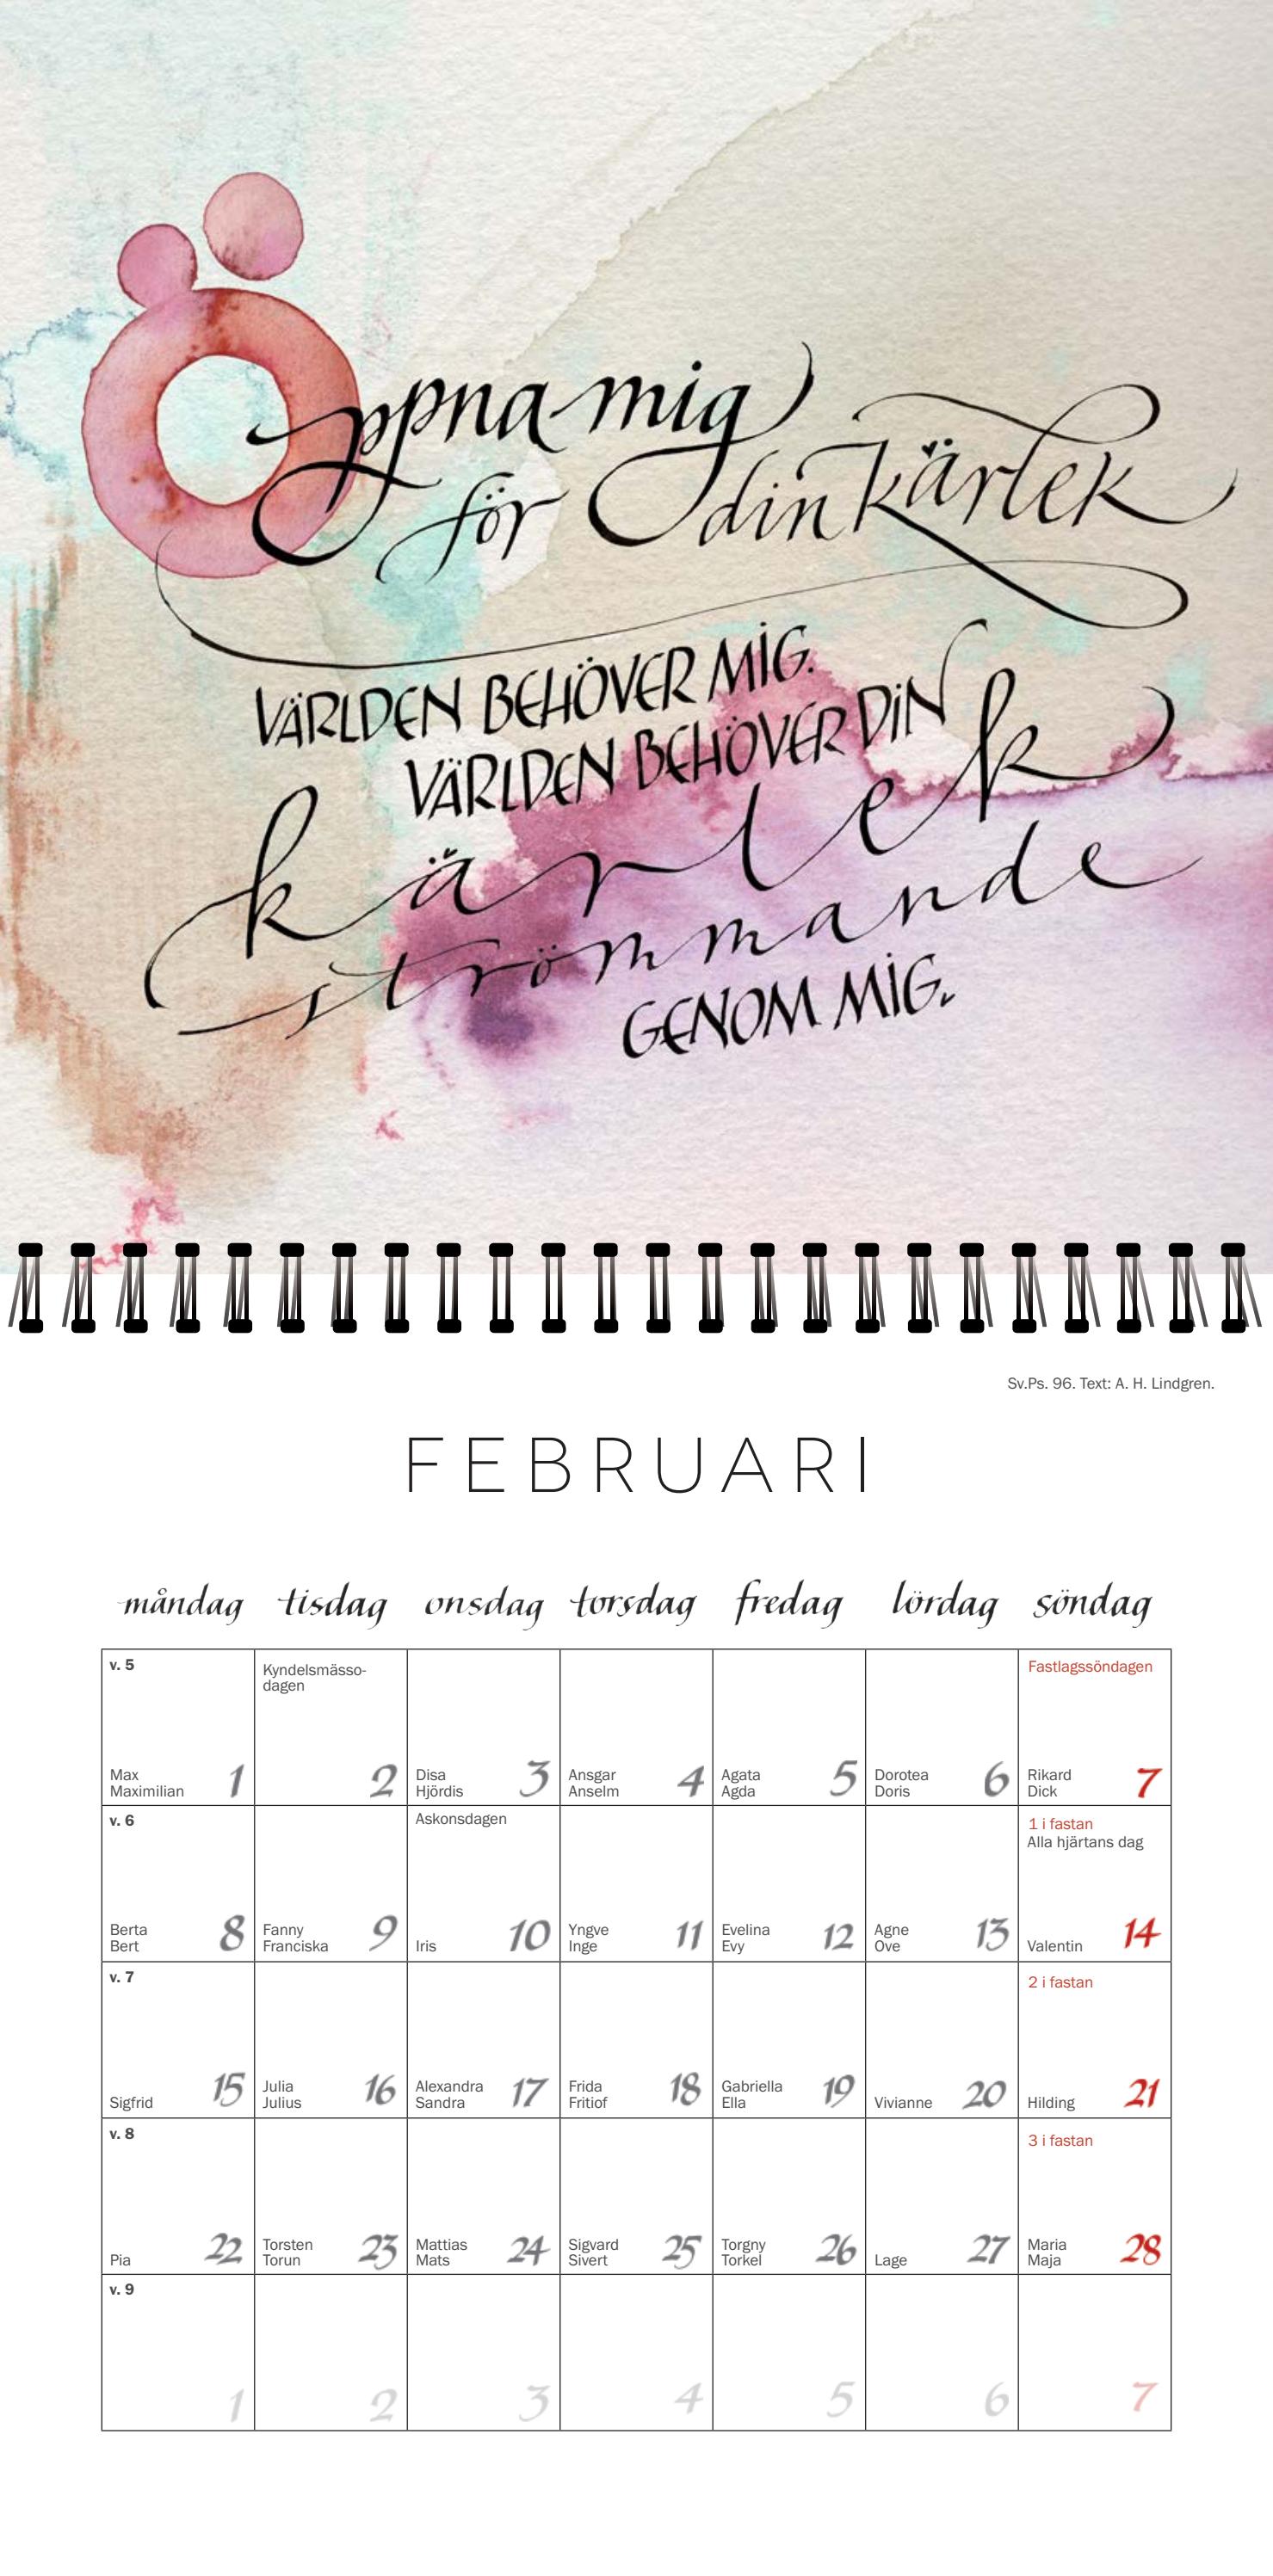 Öppna mig
för din kärlek
VÄRLDEN BEHÖVER MIG.
VÄRLDEN BEHÖVER DIN
kärlek
strömmande
GENOM MIG.
Sv.Ps. 96. Text: A. H. Lindgren.
FEBRUARI
måndag tisdag onsdag torsdag fredag lördag söndag
v. 5 Kyndelsmässo- Fastlagssöndagen
dagen
Max Disa Ansgar Agata Dorotea Rikard
Maximilian 1 2 Hjördis 3 Anselm 4 Agda 5 Doris 6 Dick 7
v. 6 Askonsdagen 1 i fastan
Alla hjärtans dag
Berta Fanny Yngve Evelina Agne
Bert 8 Franciska 9 Iris 10 Inge 11 Evy 12 Ove 13 Valentin 14
v. 7 2 i fastan
Julia Alexandra Frida Gabriella
Sigfrid 15 Julius 16 Sandra 17 Fritiof 18 Ella 19 Vivianne 20 Hilding 21
v. 8 3 i fastan
Torsten Mattias Sigvard Torgny Maria
Pia 22 Torun 23 Mats 24 Sivert 25 Torkel 26 Lage 27 Maja 28
v. 9
1 2 3 4 5 6 7